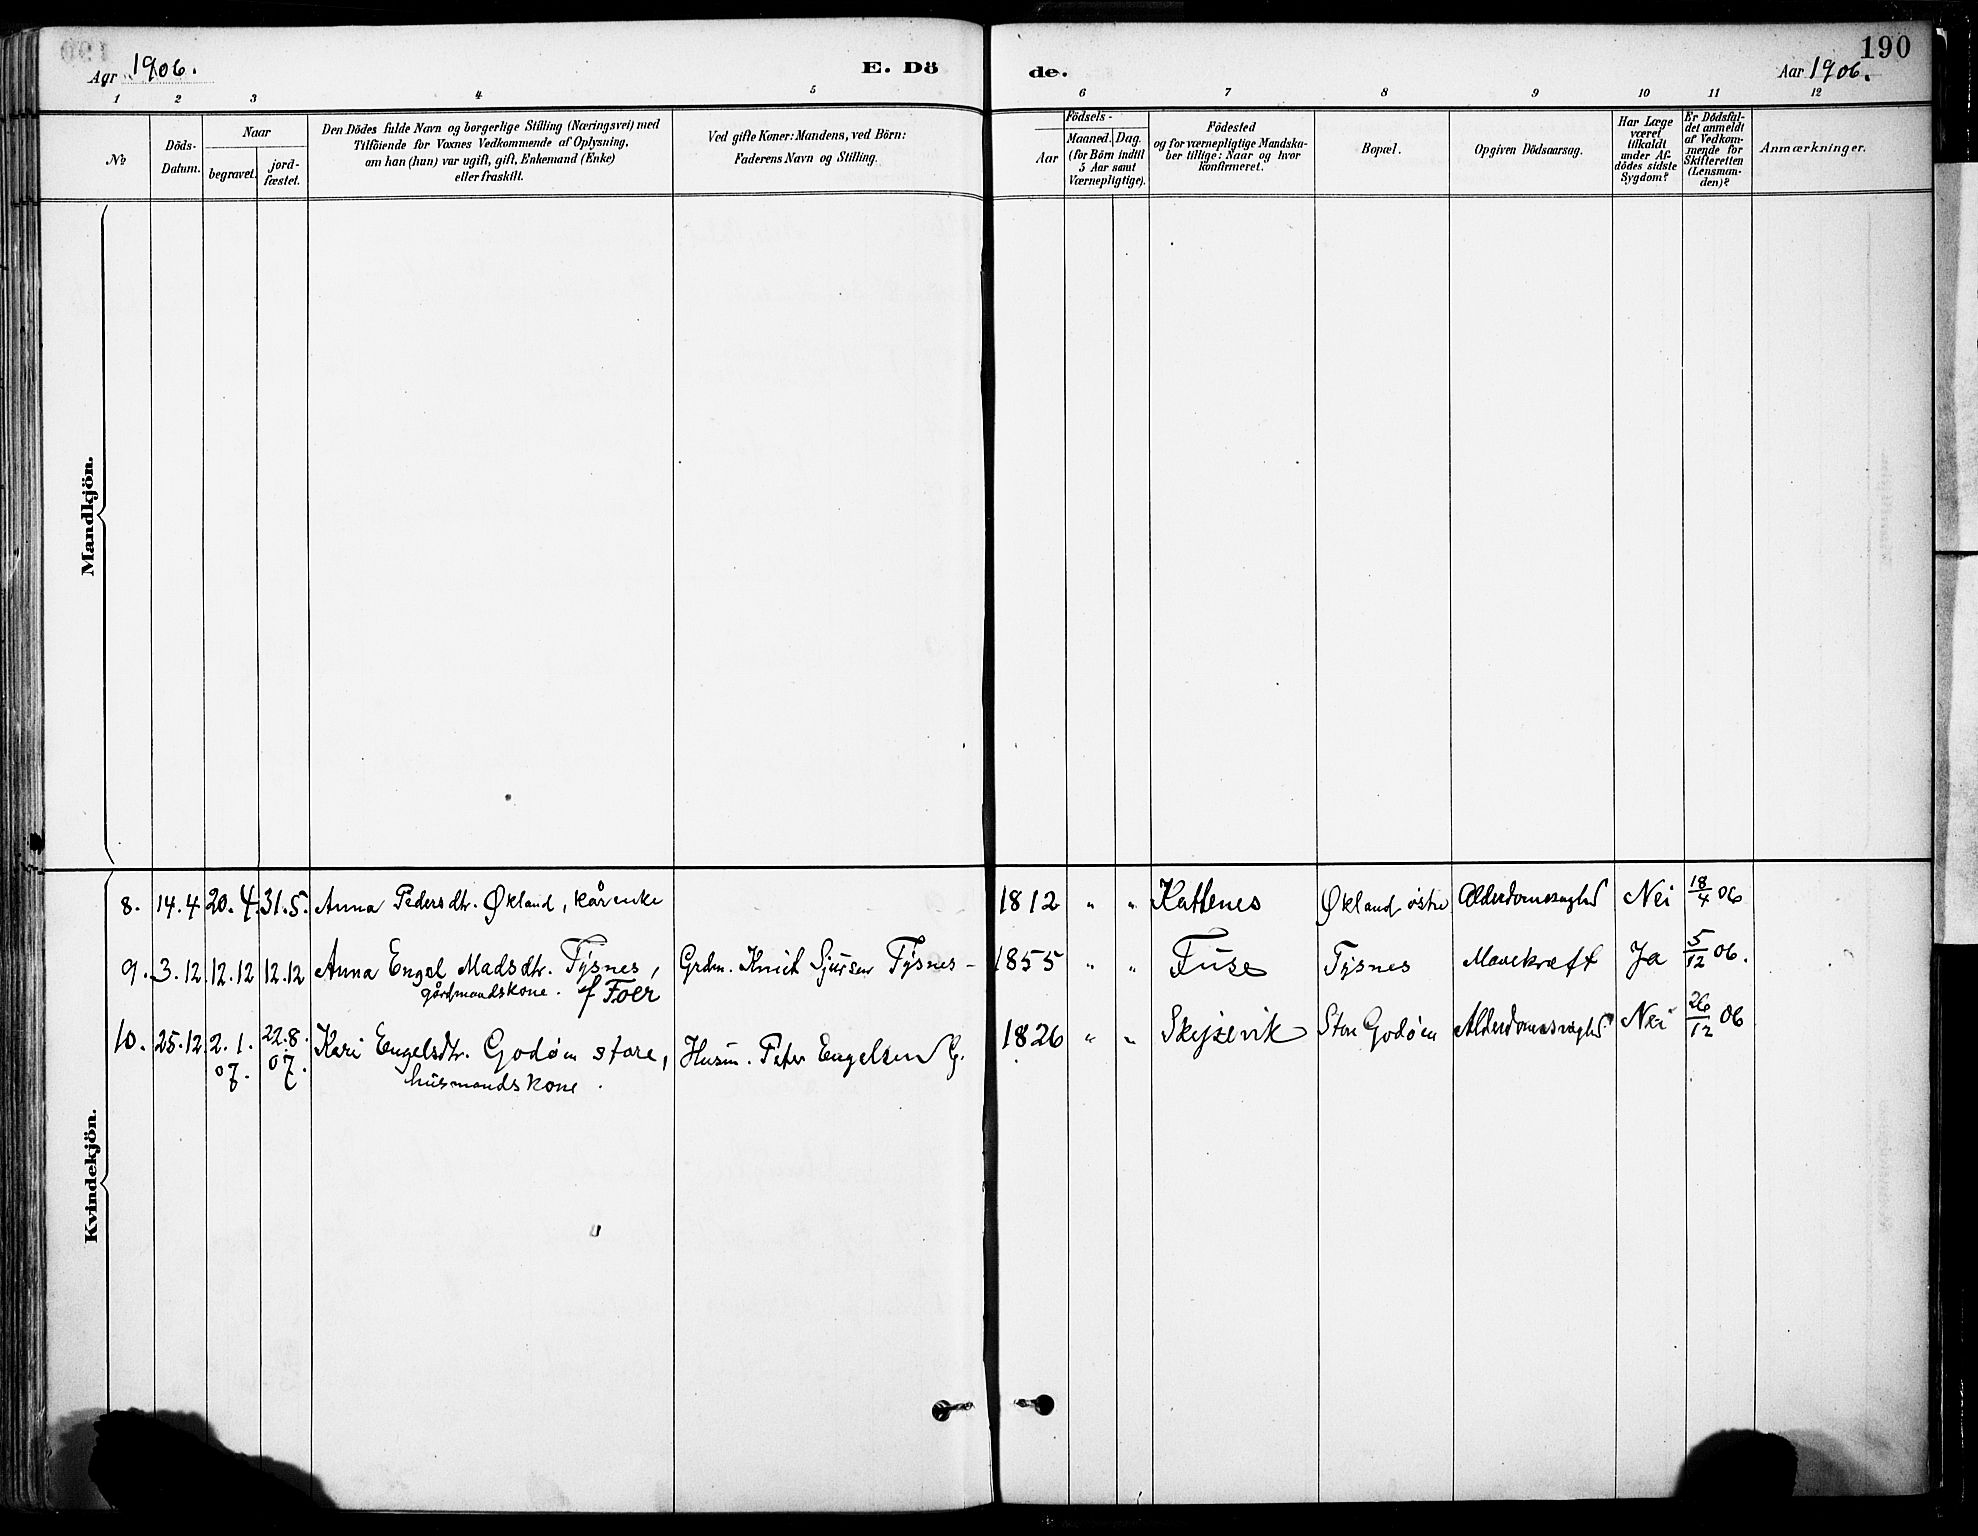 190
Aar 1906.
E. Dö
de.
Aar 1906.
1 2 3 4 5 6 7 8 9 10 11 12
№
Döds-
Datum.
Naar
begravet.
jord-
fæstet.
Den Dödes fulde Navn og borgerlige Stilling (Næringsvei) med
Tilföiende for Voxnes Vedkommende af Oplysning,
om han (hun) var ugift, gift, Enkemand (Enke)
eller fraskilt.
Ved gifte Koner: Mandens, ved Börn:
Faderens Navn og Stilling.
Födsels-
Aar
Maaned. Dag.
(for Börn indtil
5 Aar samt
Værnepligtige).
Födested
og for værnepligtige Mandska-
ber tillige: Naar og hvor
konfirmeret.
Bopæl.
Opgiven Dödsaarsag.
Har Læge
været
tilkaldt
under Af-
dödes sidste
Sygdom?
Er Dödsfal-
det anmeldt
af Vedkom-
mende for
Skifteretten
(Lensman-
den)?
Anmærkninger.
Mandkjön.
Kvindekjön.
8. 14.4 20.4. 31.5. Anna Pedersdtr. Økland, kårenke 1812 " " Kattenes Økland østre Alderdomssvaghed Nei 18/4 06
9. 3.12 12.12 12.12 Anna Engel Madsdtr. Tysnes, Grdm. Knut Sjursen Tysnes - 1855 " " Fuse Tysnes Mavekræft Ja 5/12 06.
gårdmandskone. f Foer
10. 25.12 2.1. 22.8. Kari Engelsdtr. Godøen store, Husm. Peter Engelsen G. 1826 " " Skejsevik Store Godøen Alderdomssvaghd. Nei 26/12 06
07. 07. husmandskone.